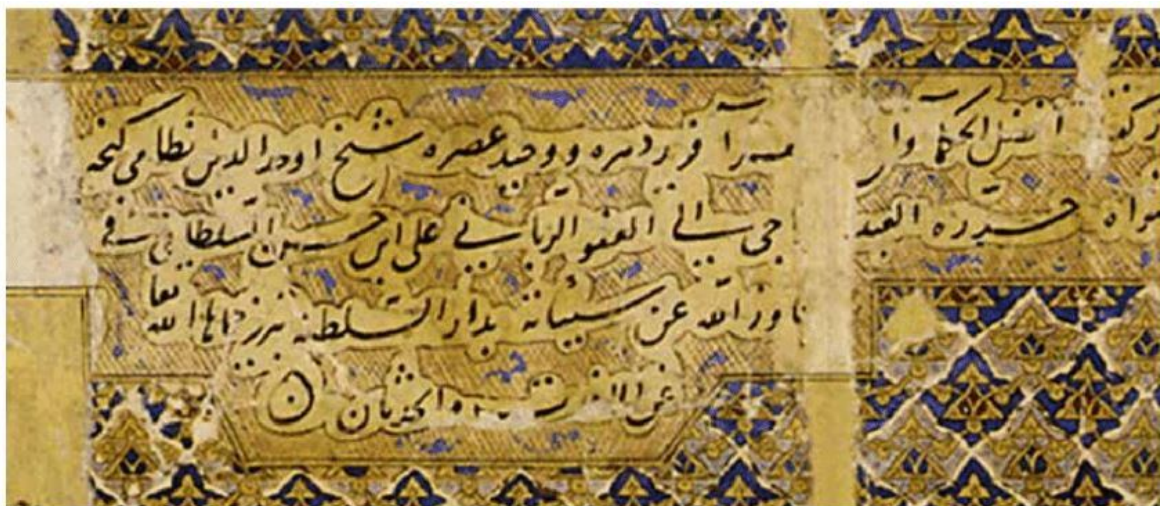 افضل الحكما فريد دهره ووحيد عصره شيخ اوحد الدين نظامى كنجه
حرره العبد الى العفو الربانى على ابن حسن السلطانى فى
الله عن سيئاته بدار السلطنه تبريز حماها الله تعا
عن الافات والحدثان